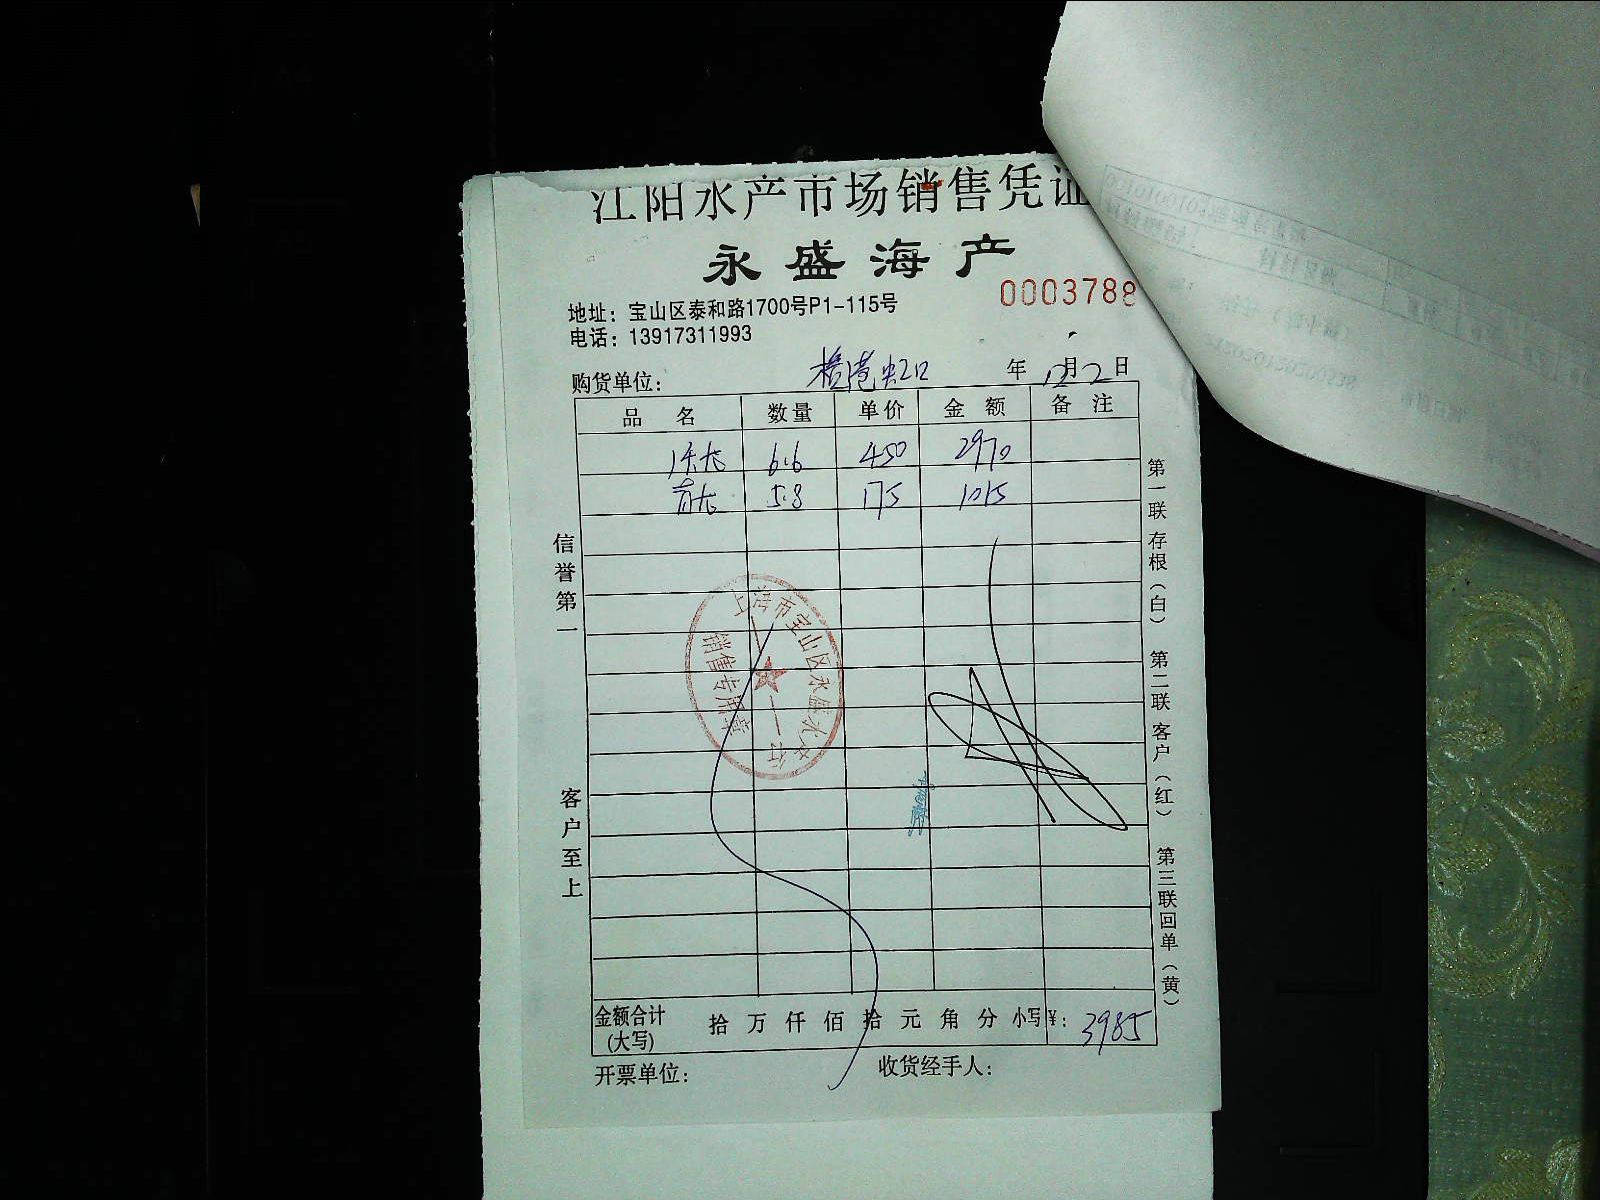 江阳水产市场销售凭证
永盛海产
0003788
地址：宝山区泰和路1700号P1-115号
电话：13917311993
购货单位： 年 12月2日
品 名 数量 单价 金 额 备 注
6.6 450 2970
5.8 175 1015
信誉第一
客户至上
第一联 存根（白） 第二联 客户（红） 第三联 回单（黄）
上海市宝山区永盛水产行
销售专用章
金额合计(大写) 拾 万 仟 佰 拾 元 角 分 小写¥: 3985
开票单位： 收货经手人：